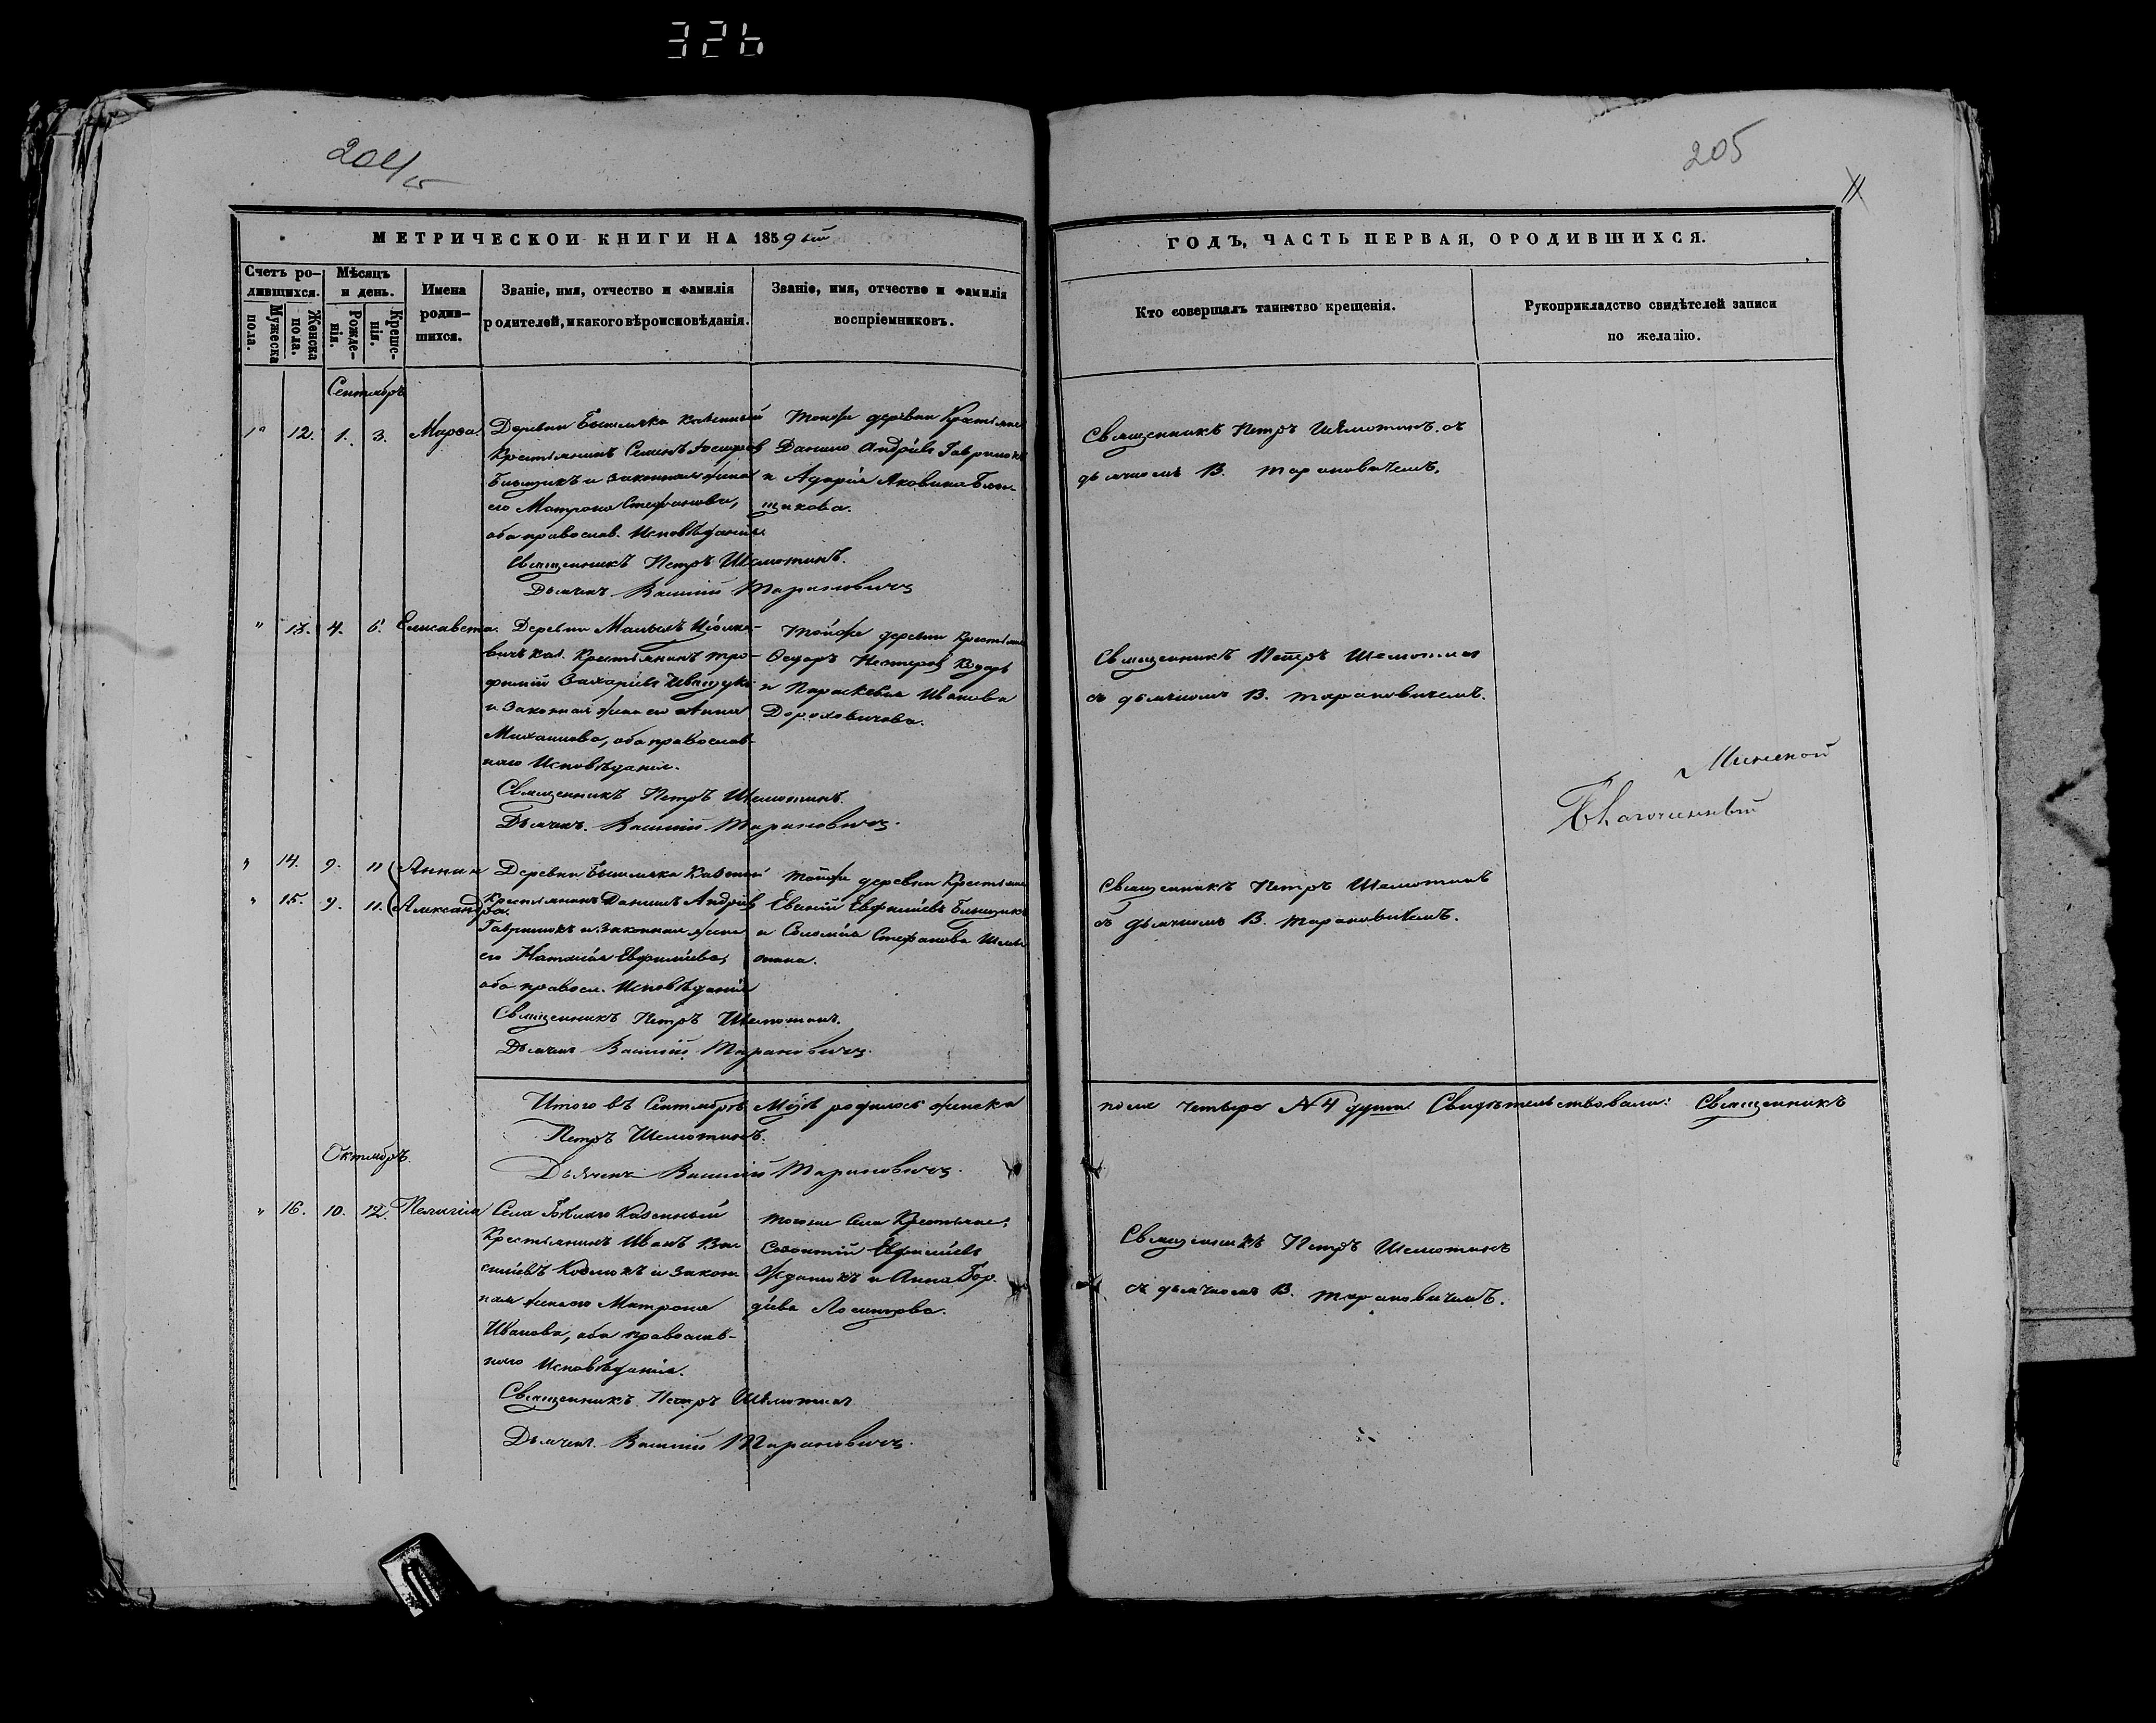 326
204
205
11
МЕТРИЧЕСКОЙ КНИГИ НА 1859 ый
ГОДЪ, ЧАСТЬ ПЕРВАЯ, О РОДИВШИХСЯ.
Счетъ ро-
дившихся.
Мужеска
пола.
Женска
пола.
Мѣсяцъ
и день.
Рожде-
нія.
Креще-
нія.
Имена
родив-
шихся.
Званіе, имя, отчество и фамилія
родителей, и какого вѣроисповѣданія.
Званіе, имя, отчество и фамилія
воспріемниковъ.
Кто совершалъ таинство крещенія.
Рукоприкладство свидѣтелей записи
по желанію.
Сентябрь
12. 1. 3. Марѳа.
Деревни казенный
Крестьянинъ Семенъ
и законная жена
его Матрона Стефанова,
оба православ. Исповѣданія.
Священникъ Петръ Шемотинъ.
Дьячекъ Василій Тарановичъ
Тойже деревни Крестьяне
Данило Андріевъ Гавринюкъ
и Агафія Яковина
щикова.
Священникъ Петръ Шемотинъ съ
дьячкомъ В. Тарановичемъ.
" 13. 4. 6. Елисавета.
Деревни
каз. Крестьянинъ Тро-
фимій Захаріевъ Иващукъ
и законная жена его Анна
Михаилова, оба православ-
наго Исповѣданія.
Священникъ Петръ Шемотинъ.
Дьячекъ Василій Тарановичъ.
Тойже деревни Крестьяне
Ѳедоръ Нестеровъ
и Параскевия Иванова
Дороховичова.
Священникъ Петръ Шемотинъ
съ дьячкомъ В. Тарановичемъ.
Благочинный
" 14. 9. 11 Анна и
" 15. 9. 11. Александра.
Деревни Казенный
Крестьянинъ Даниилъ Андріевъ
Гавринюкъ и законная жена
его Наталія Евфиміева,
оба правосл. Исповѣданія
Священникъ Петръ Шемотинъ.
Дьячекъ Василій Тарановичъ.
Тойже деревни Крестьяне
Евфиміевъ
и Соломія Стефанова
Священникъ Петръ Шемотинъ
съ дьячкомъ В. Тарановичемъ.
Итого въ Сентябрѣ Мцѣ родилось женска
пола четыре № 4 души. Свидѣтельствовали: Священникъ
Петръ Шемотинъ.
Дьячекъ Василій Тарановичъ.
Октябрь.
" 16. 10. 12. Пелагія
Села Казенный
Крестьянинъ Иванъ Ва-
силіевъ и закон-
ная жена его Матрона
Иванова, оба православ-
наго Исповѣданія.
Священникъ Петръ Шемотинъ
Дьячекъ Василій Тарановичъ.
тогоже Села Крестьяне:
Евфиміевъ
Жданюкъ и Анна Гор-
діева
Священникъ Петръ Шемотинъ
съ дьячкомъ В. Тарановичемъ.